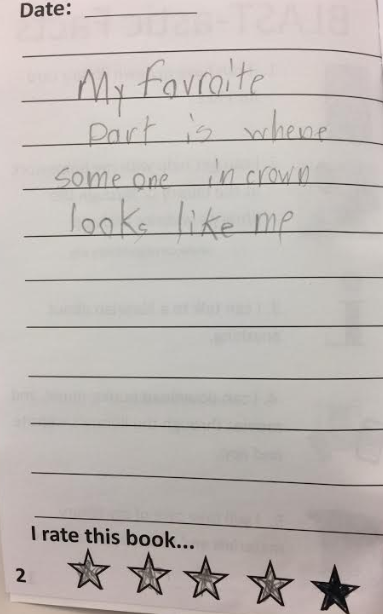 Date:
My favroite
part is where
some one in crown
looks like me
I rate this book...
2